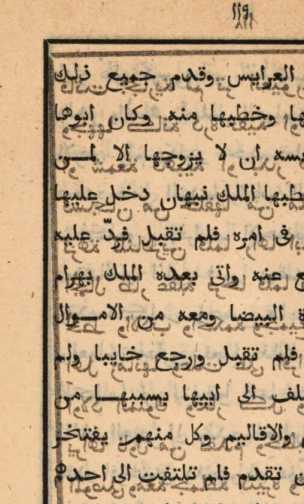 ١١٩
١١٨
العرايس وقدم جميع ذلك
ها وخطبها منه وكان ابوها
يسه ان لا يزوجها الا لمن
طبها الملك نبهان دخل عليها
فى امره فلم تقبل فردّ عليه
ع عنه واتى بعده الملك بهرام
ة البيضا ومعه من الاموال
فلم تقبل ورجع خايبا ولم
لف الى ابيها بسببها من
والاقاليم وكل منهم يفتخر
تقدم فلم تلتفت الى احدهم